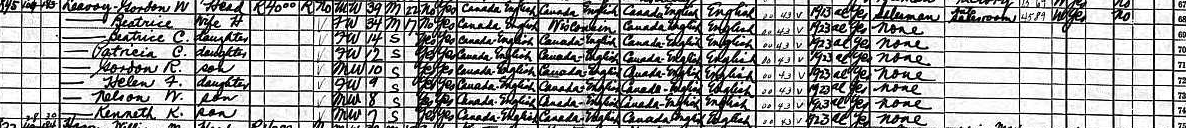 Gordon W Head R 4000 R No M W 39 M 22 No Yes Canada English Canada-English Canada-English English 00 43 V 1923 al Yes Salesman Salesroom 4589 W Yes No 67
— Beatrice Wife H V F W 34 M 17 No Yes Canada English Wisconsin Canada-English English 00 43 V 1923 al Yes None 68
— Beatrice C. daughter V F W 14 S Yes Yes Canada-English Canada-English Canada-English English 00 43 V 1923 al Yes None 69
— Patricia C. daughter V F W 12 S Yes Yes Canada-English Canada-English Canada-English English 00 43 V 1923 al Yes None 70
— Gordon R. son V M W 10 S Yes Yes Canada-English Canada-English Canada-English English 00 43 V 1923 al Yes None 71
— Helen F. daughter V F W 9 S Yes Yes Canada-English Canada-English Canada-English English 00 43 V 1923 al Yes None 72
— Nelson W. son V M W 8 S Yes Yes Canada-English Canada-English Canada-English English 00 43 V 1923 al Yes None 73
— Kenneth K. son V M W 7 S Yes Yes Canada-English Canada-English Canada-English English 00 43 V 1923 al Yes None 74